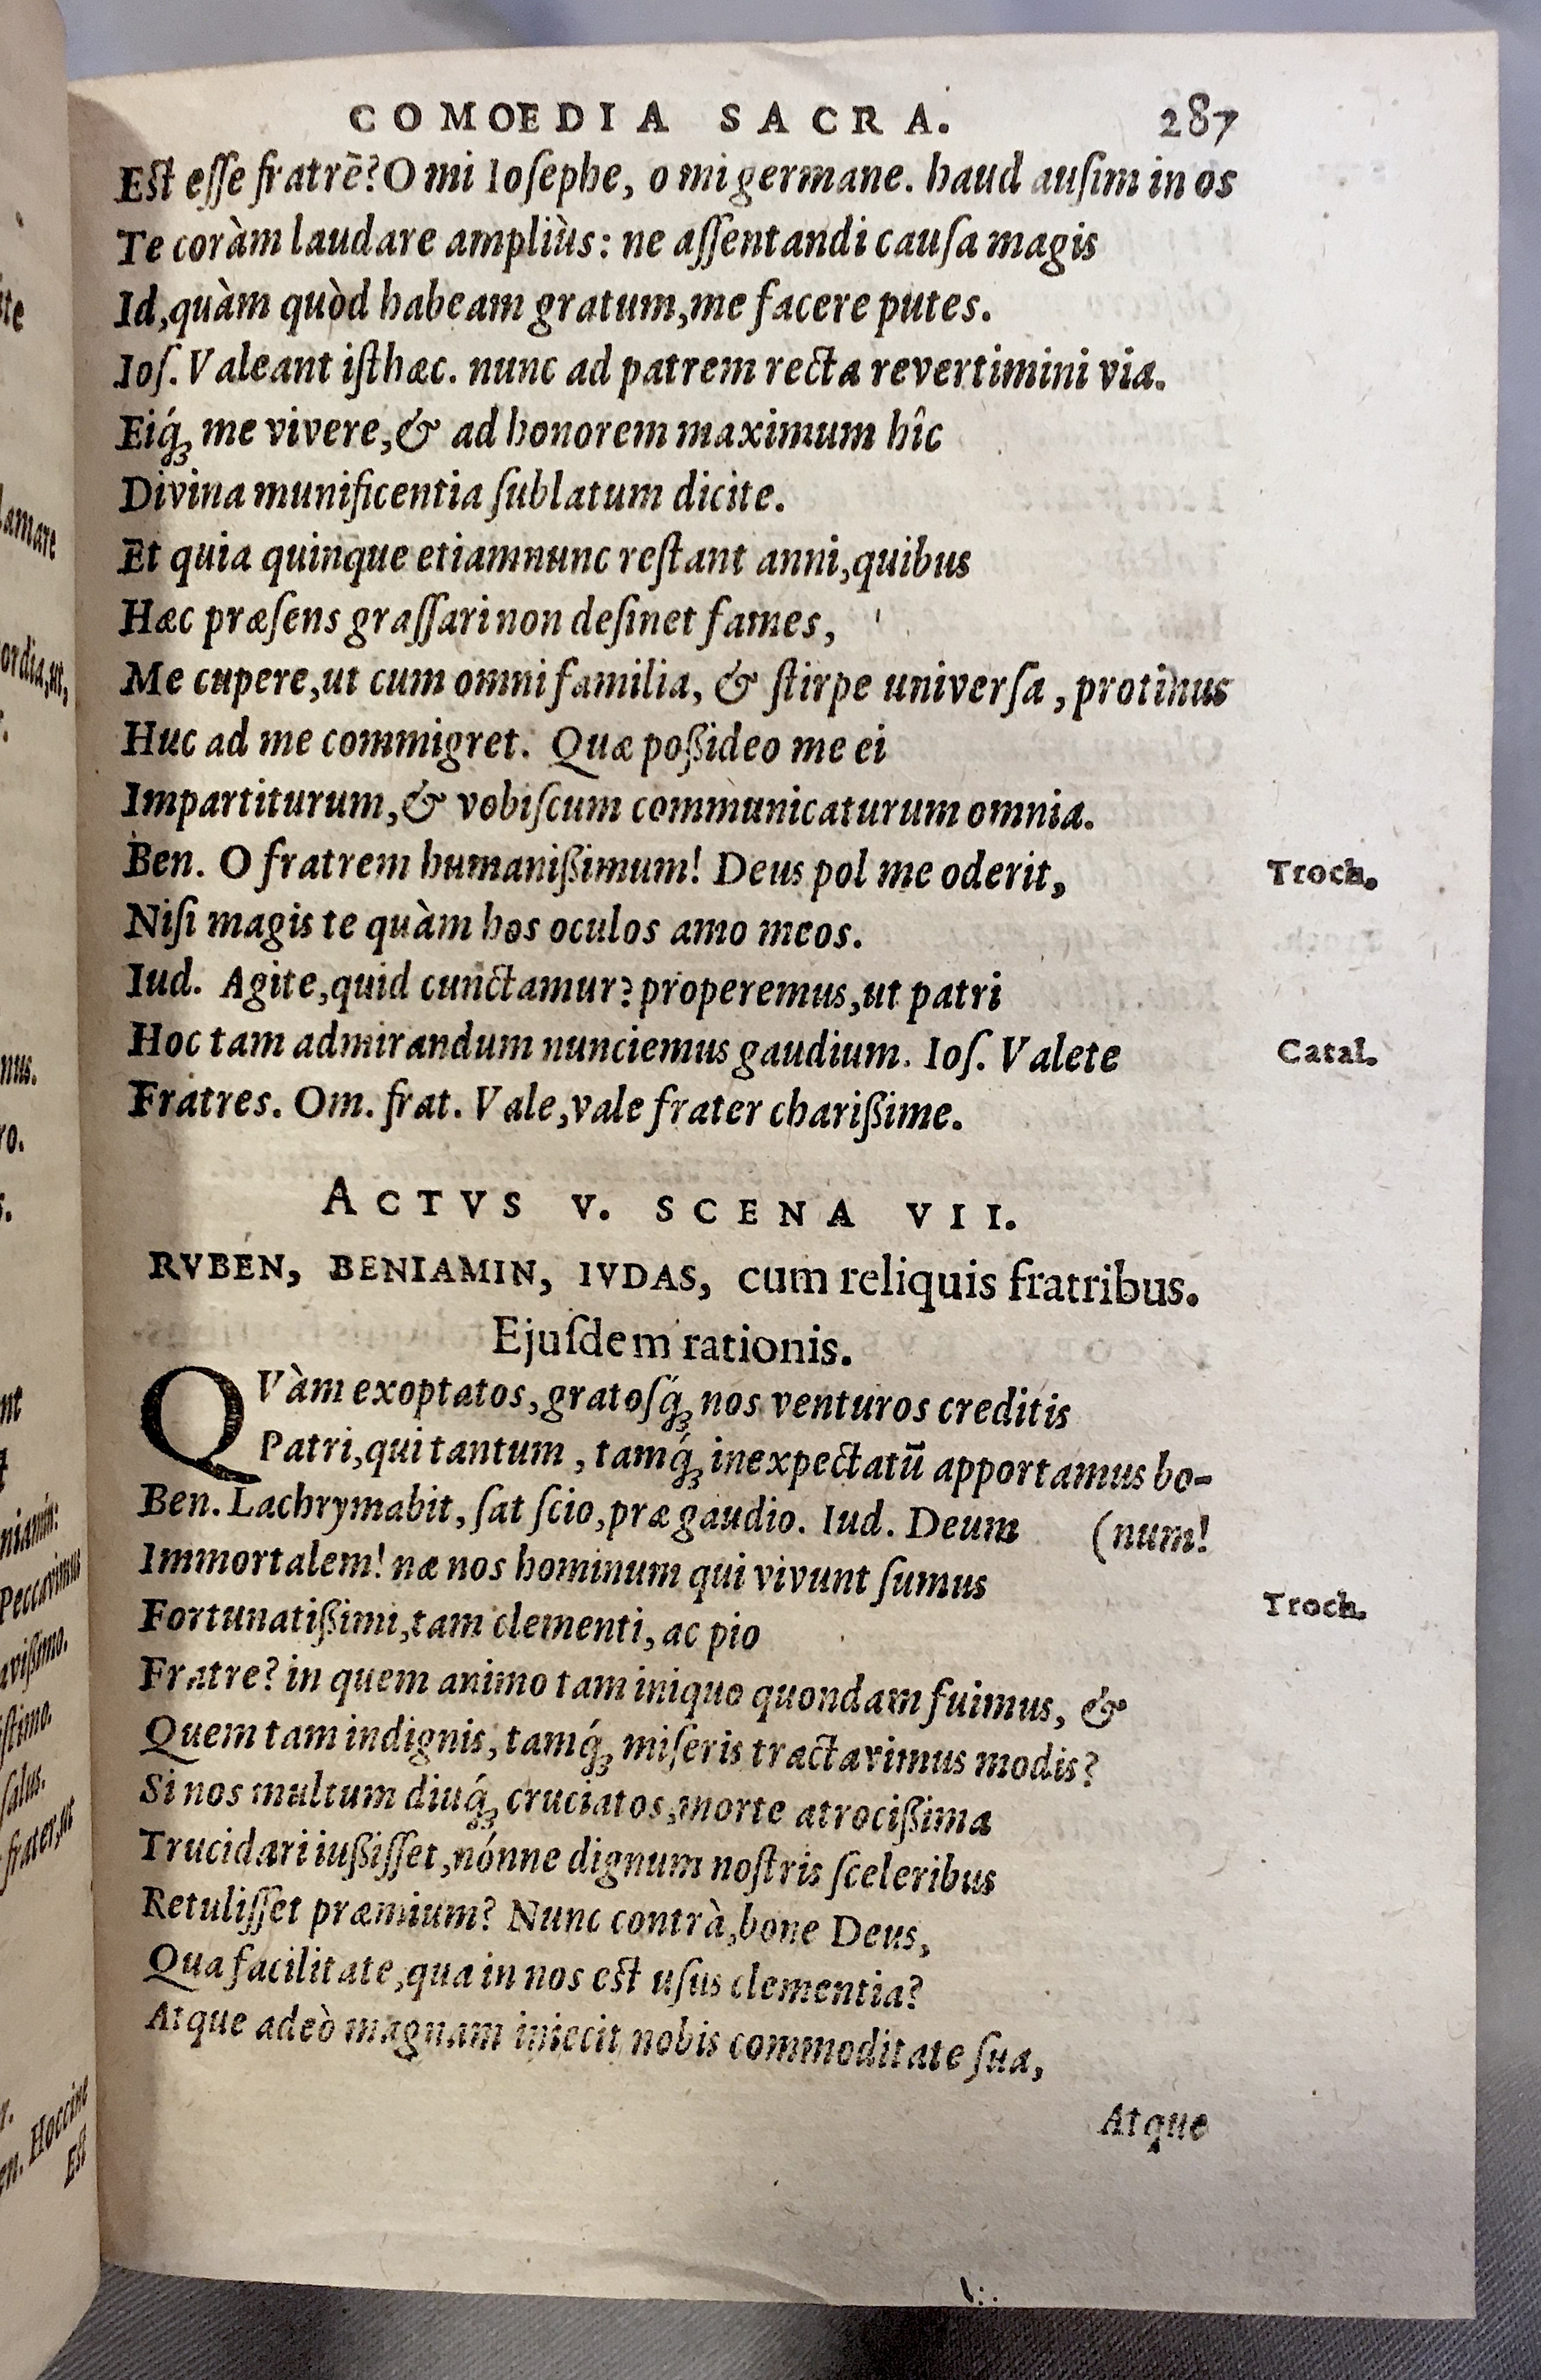 COMOEDIA SACRA. 287
Est esse fratrē? O mi Iosephe, o mi germane. haud ausim in os
Te coràm laudare ampliùs: ne assentandi causa magis
Id, quàm quòd habeam gratum, me facere putes.
Ios. Valeant isthæc. nunc ad patrem recta revertimini via.
Eiq́ꝫ me vivere, & ad honorem maximum hîc
Divina munificentia sublatum dicite.
Et quia quinque etiamnunc restant anni, quibus
Hæc præsens grassari non desinet fames,
Me cupere, ut cum omni familia, & stirpe universa, protinus
Huc ad me commigret. Quæ poßideo me ei
Impartiturum, & vobiscum communicaturum omnia.
Ben. O fratrem humanißimum! Deus pol me oderit, Troch.
Nisi magis te quàm hos oculos amo meos.
Iud. Agite, quid cunctamur? properemus, ut patri
Hoc tam admirandum nunciemus gaudium. Ios. Valete Catal.
Fratres. Om. frat. Vale, vale frater charißime.
ACTVS V. SCENA VII.
RVBEN, BENIAMIN, IVDAS, cum reliquis fratribus.
Ejusdem rationis.
QVàm exoptatos, gratosq́ꝫ nos venturos creditis
Patri, qui tantum, tamq́ꝫ inexpectatū apportamus bo-
Ben. Lachrymabit, sat scio, præ gaudio. Iud. Deum (num!
Immortalem! næ nos hominum qui vivunt sumus
Fortunatißimi, tam clementi, ac pio Troch.
Fratre? in quem animo tam iniquo quondam fuimus, &
Quem tam indignis, tamq́ꝫ miseris tractavimus modis?
Si nos multum diuq́ꝫ cruciatos, morte atrocißima
Trucidari iußisset, nónne dignum nostris sceleribus
Retulisset præmium? Nunc contrà, bone Deus,
Qua facilitate, qua in nos est usus clementia?
Atque adeò magnam iniecit nobis commoditate sua,
Atque